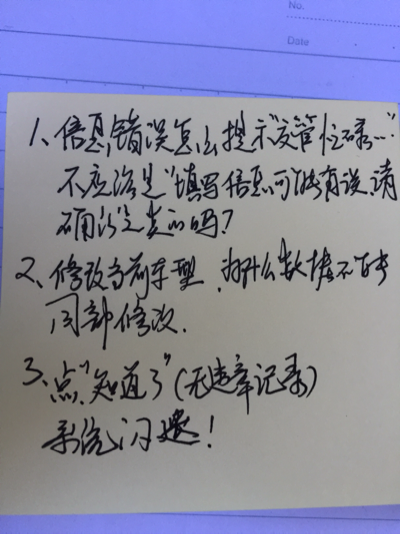 No.
Date
1、信息错误怎么提示“交管忙碌…”
不应该是“填写信息可能有误,请
确认”之类的吗?
2、修改当前车型,为什么数据不能
同部修改.
3、点“知道了”(无违章记录)
系统闪退!